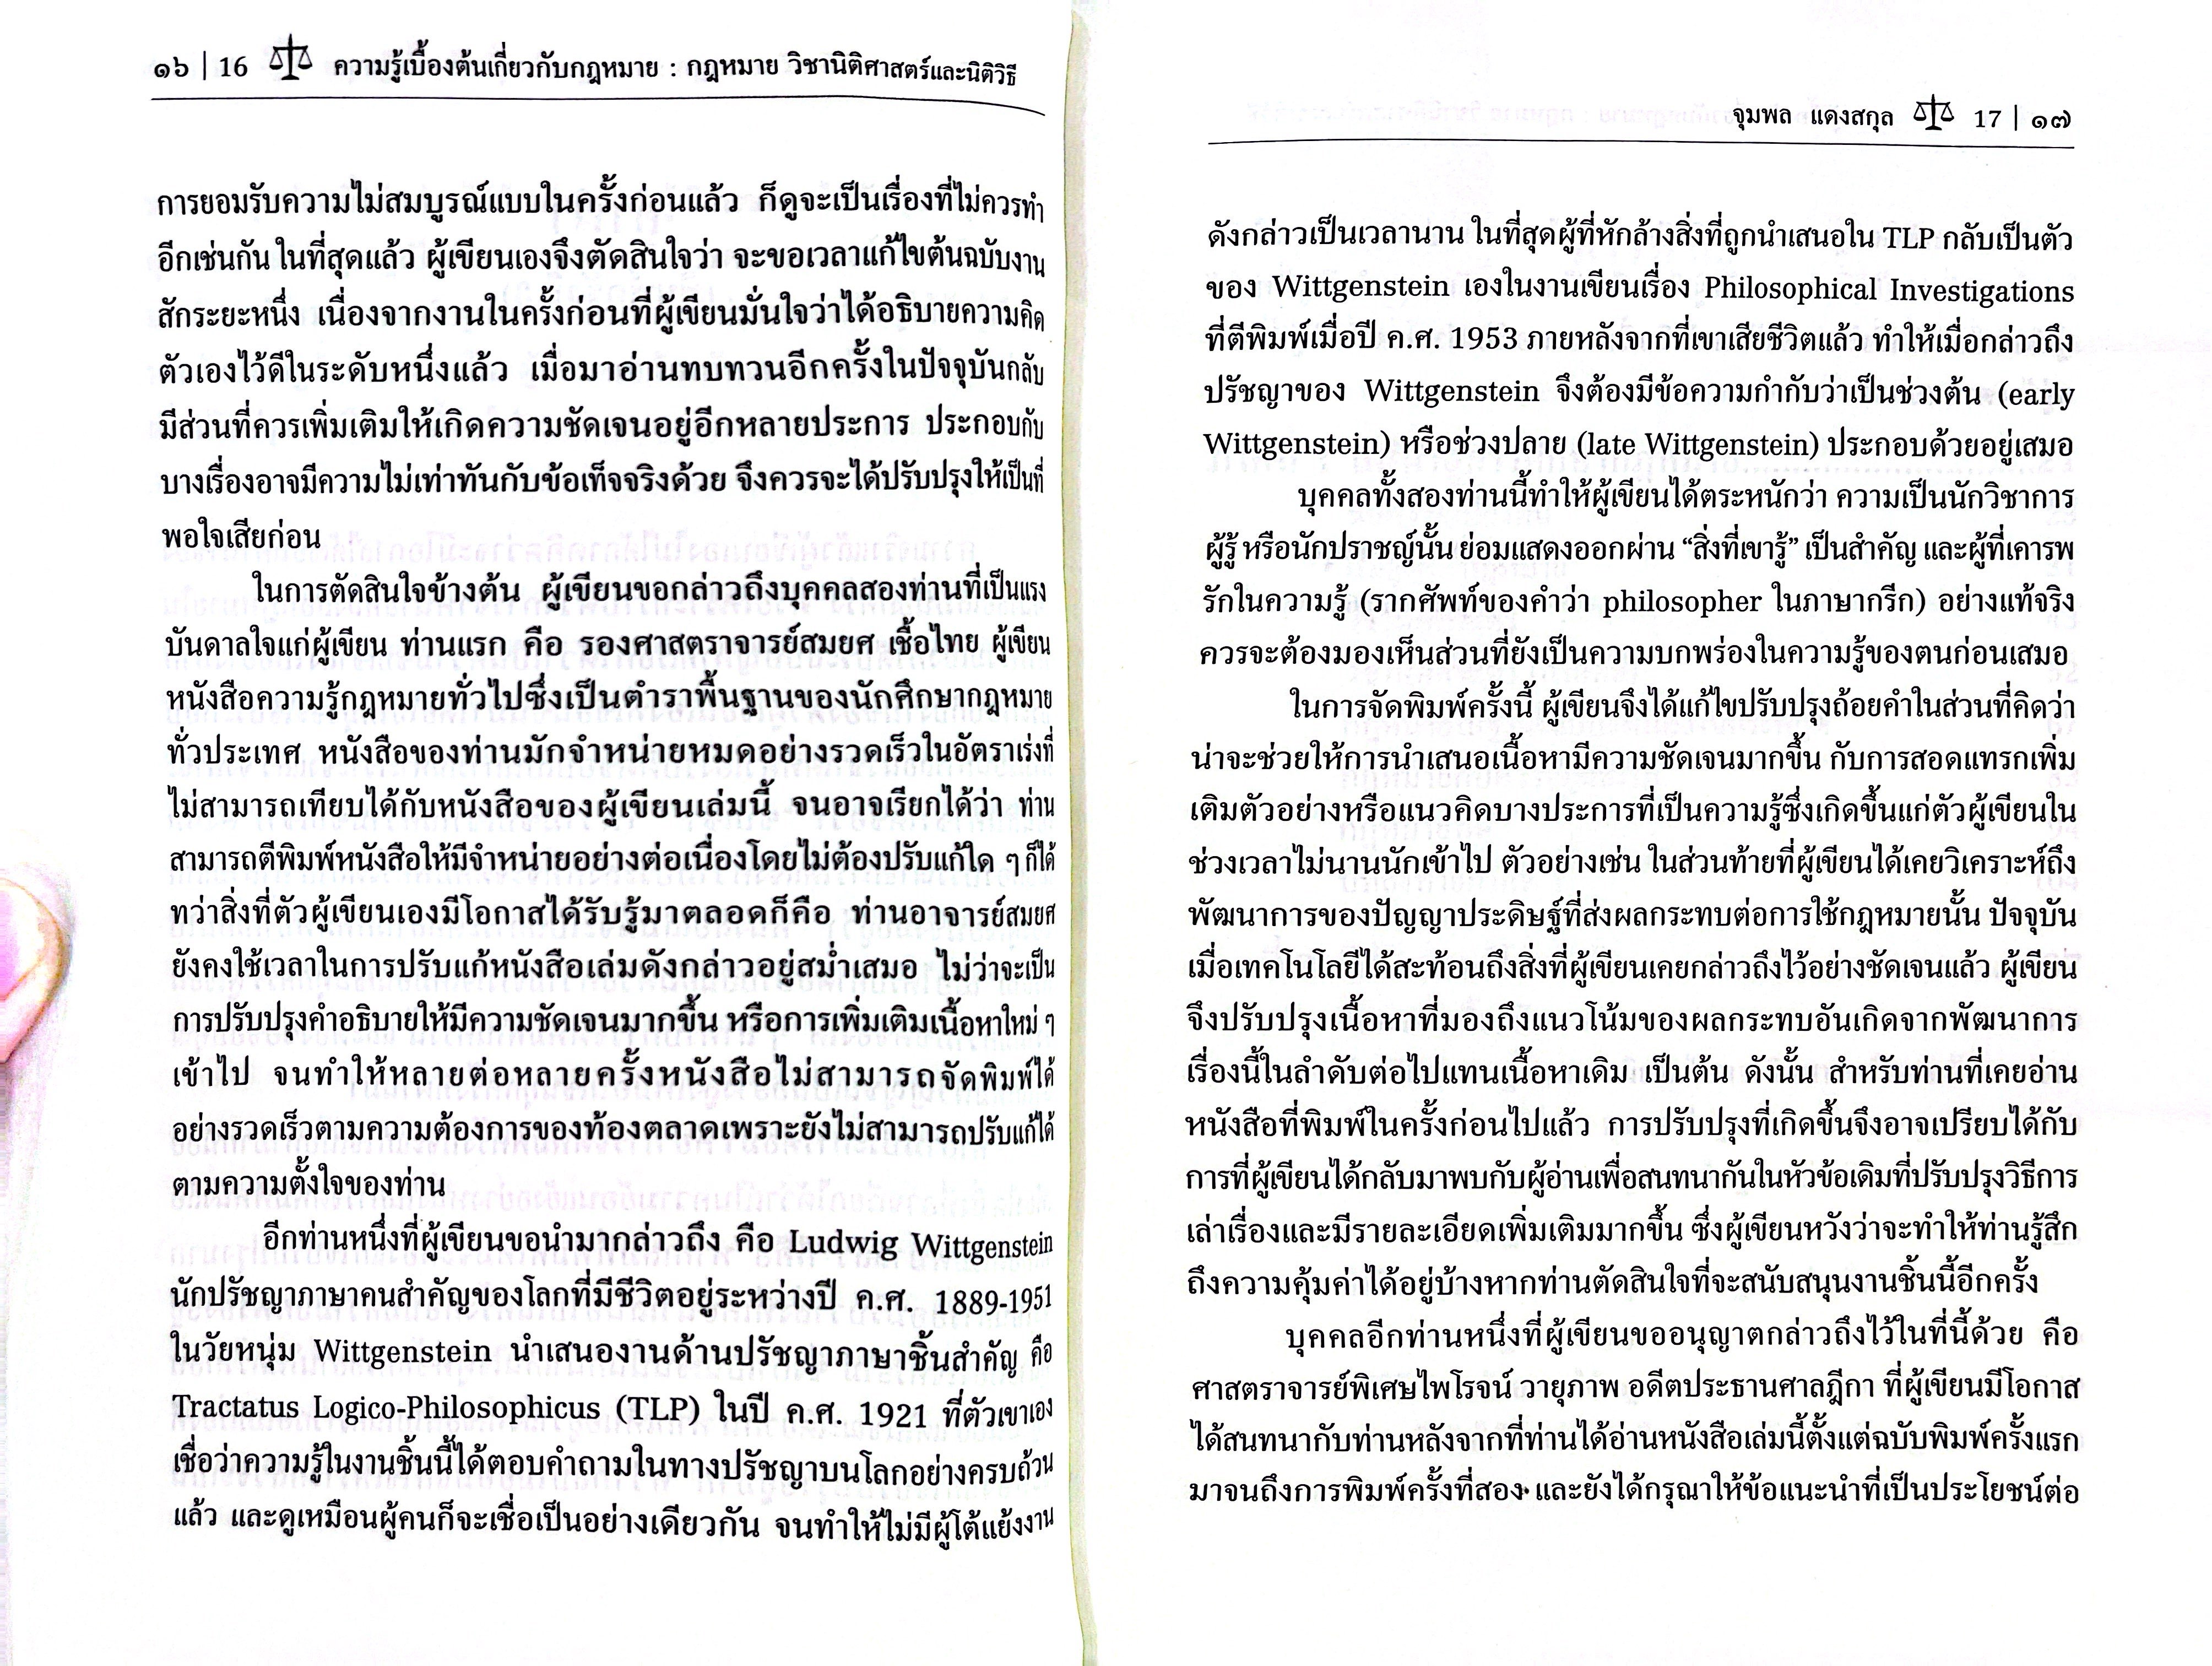 ๑๖ | 16 ความรู้เบื้องต้นเกี่ยวกับกฎหมาย : กฎหมาย วิชานิติศาสตร์และนิติวิธี
การยอมรับความไม่สมบูรณ์แบบในครั้งก่อนแล้ว ก็ดูจะเป็นเรื่องที่ไม่ควรทำ
อีกเช่นกัน ในที่สุดแล้ว ผู้เขียนเองจึงตัดสินใจว่า จะขอเวลาแก้ไขต้นฉบับงาน
สักระยะหนึ่ง เนื่องจากงานในครั้งก่อนที่ผู้เขียนมั่นใจว่าได้อธิบายความคิด
ตัวเองไว้ดีในระดับหนึ่งแล้ว เมื่อมาอ่านทบทวนอีกครั้งในปัจจุบันกลับ
มีส่วนที่ควรเพิ่มเติมให้เกิดความชัดเจนอยู่อีกหลายประการ ประกอบกับ
บางเรื่องอาจมีความไม่เท่าทันกับข้อเท็จจริงด้วย จึงควรจะได้ปรับปรุงให้เป็นที่
พอใจเสียก่อน
ในการตัดสินใจข้างต้น ผู้เขียนขอกล่าวถึงบุคคลสองท่านที่เป็นแรง
บันดาลใจแก่ผู้เขียน ท่านแรก คือ รองศาสตราจารย์สมยศ เชื้อไทย ผู้เขียน
หนังสือความรู้กฎหมายทั่วไปซึ่งเป็นตำราพื้นฐานของนักศึกษากฎหมาย
ทั่วประเทศ หนังสือของท่านมักจำหน่ายหมดอย่างรวดเร็วในอัตราเร่งที่
ไม่สามารถเทียบได้กับหนังสือของผู้เขียนเล่มนี้ จนอาจเรียกได้ว่า ท่าน
สามารถตีพิมพ์หนังสือให้มีจำหน่ายอย่างต่อเนื่องโดยไม่ต้องปรับแก้ใด ๆ ก็ได้
ทว่าสิ่งที่ตัวผู้เขียนเองมีโอกาสได้รับรู้มาตลอดก็คือ ท่านอาจารย์สมยศ
ยังคงใช้เวลาในการปรับแก้หนังสือเล่มดังกล่าวอยู่สม่ำเสมอ ไม่ว่าจะเป็น
การปรับปรุงคำอธิบายให้มีความชัดเจนมากขึ้น หรือการเพิ่มเติมเนื้อหาใหม่ ๆ
เข้าไป จนทำให้หลายต่อหลายครั้งหนังสือไม่สามารถจัดพิมพ์ได้
อย่างรวดเร็วตามความต้องการของท้องตลาดเพราะยังไม่สามารถปรับแก้ได้
ตามความตั้งใจของท่าน
อีกท่านหนึ่งที่ผู้เขียนขอนำมากล่าวถึง คือ Ludwig Wittgenstein
นักปรัชญาภาษาคนสำคัญของโลกที่มีชีวิตอยู่ระหว่างปี ค.ศ. 1889-1951
ในวัยหนุ่ม Wittgenstein นำเสนองานด้านปรัชญาภาษาชิ้นสำคัญ คือ
Tractatus Logico-Philosophicus (TLP) ในปี ค.ศ. 1921 ที่ตัวเขาเอง
เชื่อว่าความรู้ในงานชิ้นนี้ได้ตอบคำถามในทางปรัชญาบนโลกอย่างครบถ้วน
แล้ว และดูเหมือนผู้คนก็จะเชื่อเป็นอย่างเดียวกัน จนทำให้ไม่มีผู้โต้แย้งงาน
จุมพล แดงสกุล 17 | ๑๗
ดังกล่าวเป็นเวลานาน ในที่สุดผู้ที่หักล้างสิ่งที่ถูกนำเสนอใน TLP กลับเป็นตัว
ของ Wittgenstein เองในงานเขียนเรื่อง Philosophical Investigations
ที่ตีพิมพ์เมื่อปี ค.ศ. 1953 ภายหลังจากที่เขาเสียชีวิตแล้ว ทำให้เมื่อกล่าวถึง
ปรัชญาของ Wittgenstein จึงต้องมีข้อความกำกับว่าเป็นช่วงต้น (early
Wittgenstein) หรือช่วงปลาย (late Wittgenstein) ประกอบด้วยอยู่เสมอ
บุคคลทั้งสองท่านนี้ทำให้ผู้เขียนได้ตระหนักว่า ความเป็นนักวิชาการ
ผู้รู้ หรือนักปราชญ์นั้น ย่อมแสดงออกผ่าน “สิ่งที่เขารู้” เป็นสำคัญ และผู้ที่เคารพ
รักในความรู้ (รากศัพท์ของคำว่า philosopher ในภาษากรีก) อย่างแท้จริง
ควรจะต้องมองเห็นส่วนที่ยังเป็นความบกพร่องในความรู้ของตนก่อนเสมอ
ในการจัดพิมพ์ครั้งนี้ ผู้เขียนจึงได้แก้ไขปรับปรุงถ้อยคำในส่วนที่คิดว่า
น่าจะช่วยให้การนำเสนอเนื้อหามีความชัดเจนมากขึ้น กับการสอดแทรกเพิ่ม
เติมตัวอย่างหรือแนวคิดบางประการที่เป็นความรู้ซึ่งเกิดขึ้นแก่ตัวผู้เขียนใน
ช่วงเวลาไม่นานนักเข้าไป ตัวอย่างเช่น ในส่วนท้ายที่ผู้เขียนได้เคยวิเคราะห์ถึง
พัฒนาการของปัญญาประดิษฐ์ที่ส่งผลกระทบต่อการใช้กฎหมายนั้น ปัจจุบัน
เมื่อเทคโนโลยีได้สะท้อนถึงสิ่งที่ผู้เขียนเคยกล่าวถึงไว้อย่างชัดเจนแล้ว ผู้เขียน
จึงปรับปรุงเนื้อหาที่มองถึงแนวโน้มของผลกระทบอันเกิดจากพัฒนาการ
เรื่องนี้ในลำดับต่อไปแทนเนื้อหาเดิม เป็นต้น ดังนั้น สำหรับท่านที่เคยอ่าน
หนังสือที่พิมพ์ในครั้งก่อนไปแล้ว การปรับปรุงที่เกิดขึ้นจึงอาจเปรียบได้กับ
การที่ผู้เขียนได้กลับมาพบกับผู้อ่านเพื่อสนทนากันในหัวข้อเดิมที่ปรับปรุงวิธีการ
เล่าเรื่องและมีรายละเอียดเพิ่มเติมมากขึ้น ซึ่งผู้เขียนหวังว่าจะทำให้ท่านรู้สึก
ถึงความคุ้มค่าได้อยู่บ้างหากท่านตัดสินใจที่จะสนับสนุนงานชิ้นนี้อีกครั้ง
บุคคลอีกท่านหนึ่งที่ผู้เขียนขออนุญาตกล่าวถึงไว้ในที่นี้ด้วย คือ
ศาสตราจารย์พิเศษไพโรจน์ วายุภาพ อดีตประธานศาลฎีกา ที่ผู้เขียนมีโอกาส
ได้สนทนากับท่านหลังจากที่ท่านได้อ่านหนังสือเล่มนี้ตั้งแต่ฉบับพิมพ์ครั้งแรก
มาจนถึงการพิมพ์ครั้งที่สอง และยังได้กรุณาให้ข้อแนะนำที่เป็นประโยชน์ต่อ